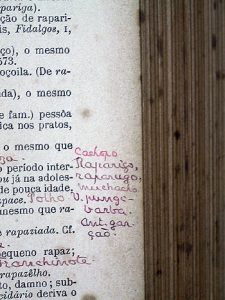 pariga).
ação de rapari-
is, Fidalgos, I,
ço), o mesmo
573.
oçoila. (De ra-
da), o mesmo
e fam.) pessôa
ica nos pratos,
o mesmo que
o período inter-
ou já na adoles-
de pouca idade,
pace. Polho.
mesmo que ra-
rapaziada. Cf.
pequeno rapaz;
Franchinote
rapazêlho.
to, damno; sub-
cidário deriva o
Cachopo
Raparigo,
raparugo,
muchacho.
V. pungo-
barba.
Ant. gar-
ção.